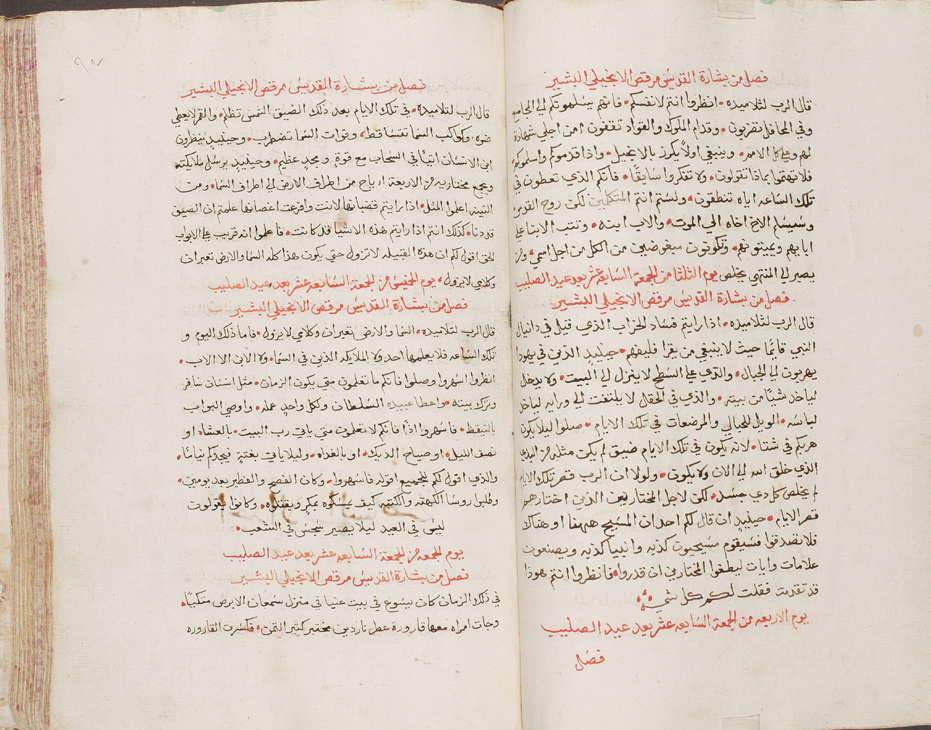 فصل من بشارة القديس مرقص الانجيلي البشير
قال الرب لتلاميذه • انظروا انتم لانفسكم • فانهم يسلموكم الي المجامع
وفي المحافل تضربون • وقدام الملوك والقواد تقفون من اجلي شهادة
لهم ولكل الامم • وينبغي اولاً يكرز بالانجيل • واذا قدموكم واسلموكم
فلا تهتموا بماذا تقولون • ولا تفكروا سابقًا • فانكم الذي تعطون في
تلك الساعه اياه تنطقون • ولستم انتم المتكلمين لكن روح القدس
وسيسلم الاخ اخاه الي الموت • والاب ابنه • وتثب الابنا علي
ابايهم ويميتونهم • وتكونون مبغوضين من الكل من اجل اسمي • ومن
يصبر الي المنتهي يخلص يوم الثلثا من الجمعة السابعه عشر بعد عيد الصليب
فصل من بشارة القديس مرقص الانجيلي البشير
قال الرب لتلاميذه • اذا رايتم فساد الخراب الذي قيل في دانيال
النبي قايمًا حيث لا ينبغي من يقرا فليفهم • حينيذٍ الذين في يهودا
يهربون الي الجبال • والذي علي السطح لا ينزل الي البيت • ولا يدخل
لياخذ شيًا من بيته • والذي في الحقل لا يلتفت الي ورايه لياخذ
لباسه • الويل للحبالي والمرضعات في تلك الايام • صلوا ليلا يكون
هربكم في شتا • لانه يكون في تلك الايام ضيق لم يكن مثله من البدي
الذي خلق الله الي الان ولا يكون • ولولا ان الرب قصر تلك الايام
لم يخلص كل ذي جسد • لكن لاجل المختارين الذين اختارهم
قصر الايام • حينيذٍ ان قال لكم احد ان المسيح ههنا او هناك
فلا تصدقوا فسيقوم مسيحيون كذبه وانبيا كذبه ويصنعون
علامات وايات ليطغوا المختارين ان قدروا • فانظروا انتم هوذا
قد تقدمت فقلت لكم كل شي
يوم الاربعه من الجمعة السابعه عشر بعد عيد الصليب
فصل
فصل من بشارة القديس مرقص الانجيلي البشير
قال الرب لتلاميذه • في تلك الايام بعد ذلك الضيق الشمس تظلم • والقمر لا يعطي
ضوه • وكواكب السما تتساقط • وقوات السما تضطرب • وحينيذٍ ينظرون
ابن الانسان اتيًا في السحاب مع قوة ومجدٍ عظيم • وحينيذٍ يرسل ملايكته
ويجمع مختاريه من الاربعة ارياح من اطراف الارض الي اطراف السما • ومن
التينه اعلموا المثل • اذا رايتم قضبانها لانت وافرعت اغصانها علمتم ان الصيف
قد دنا • كذلك انتم اذا رايتم هذه الاشيا قد كانت • فاعلموا انه قريب علي الابواب
الحق اقول لكم ان هذه القبيله لا تزول حتي يكون هذا كله السما والارض تعبران
وكلامي لا يزول • يوم الخميس من الجمعة السابعه عشر بعد عيد الصليب
فصل من بشارة القديس مرقص الانجيلي البشير
قال الرب لتلاميذه • السما والارض تعبران وكلامي لا يزول • فاما ذلك اليوم و
تلك الساعه فلا يعلمها احد ولا الملايكه الذين في السما • ولا الابن الا الاب •
انظروا اسهروا وصلوا فانكم ما تعلمون متي يكون الزمان • مثل انسان سافر
وترك بيته • واعطا عبيده السلطان ولكل واحدٍ عمله • واوصي البواب
بالتيقظ • فاسهروا اذًا فانكم لا تعلمون متي ياتي رب البيت • بالعشاء او
نصف الليل • او صياح الديك • او بالغداه • وليلا ياتي بغتةٍ فيجدكم نيامًا •
والذي اقول لكم للجميع اقوله فاسهروا • وكان الفصح والفطير بعد يومين •
وطلبوا روسا الكهنه والكتبه كيف يمسكوه بمكرٍ ويقتلوه • وكانوا يقولون
ليس في العيد ليلا يصير سجس في الشعب •
يوم الجمعه من الجمعة السابعه عشر بعد عيد الصليب
فصل من بشارة القديس مرقص الانجيلي البشير
في ذلك الزمان كان يسوع في بيت عنيا في منزل سمعان الابرص متكيًا •
وجات امراه معها قارورة عطر ناردين مختبر كثير الثمن • فكسرت القاروره